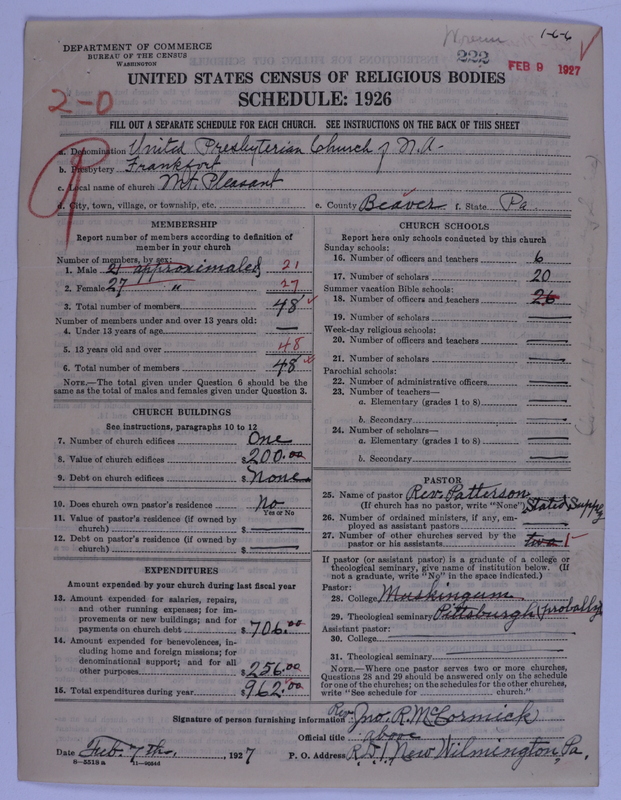 1-6-6
DEPARTMENT OF COMMERCE
BUREAU OF THE CENSUS
WASHINGTON
222
FEB 9 1927
UNITED STATES CENSUS OF RELIGIOUS BODIES
SCHEDULE: 1926
2-0
FILL OUT A SEPARATE SCHEDULE FOR EACH CHURCH. SEE INSTRUCTIONS ON THE BACK OF THIS SHEET
a. Denomination United Presbyterian Church of N.A.
b. Presbytery Frankfort
c. Local name of church Mt. Pleasant
d. City, town, village, or township, etc. e. County Beaver f. State Pa.
MEMBERSHIP
Report number of members according to definition of
member in your church
Number of members, by sex:
1. Male 21 approximated 21
2. Female 27 " 27
3. Total number of members 48
Number of members under and over 13 years old:
4. Under 13 years of age —
5. 13 years old and over 48
6. Total number of members 48
NOTE.—The total given under Question 6 should be
same as the total of males and females given under Question 3.
CHURCH BUILDINGS
See instructions, paragraphs 10 to 12
7. Number of church edifices One
8. Value of church edifices $200.00
9. Debt on church edifices $ None
10. Does church own pastor's residence No
Yes or No
11. Value of pastor's residence (if owned by
church) $ —
12. Debt on pastor's residence (if owned by
church) $ —
EXPENDITURES
Amount expended by your church during last fiscal year
13. Amount expended for salaries, repairs,
and other running expenses; for im-
provements or new buildings; and for
payments on church debt $706.00
14. Amount expended for benevolences, in-
cluding home and foreign missions; for
denominational support; and for all
other purposes $256.00
15. Total expenditures during year $962.00
CHURCH SCHOOLS
Report here only schools conducted by this church
Sunday schools:
16. Number of officers and teachers 6
17. Number of scholars 20
Summer vacation Bible schools:
18. Number of officers and teachers 26
19. Number of scholars —
Week-day religious schools:
20. Number of officers and teachers —
21. Number of scholars —
Parochial schools:
22. Number of administrative officers —
23. Number of teachers—
a. Elementary (grades 1 to 8) —
b. Secondary —
24. Number of scholars—
a. Elementary (grades 1 to 8) —
b. Secondary —
PASTOR
25. Name of pastor Rev. Patterson
(If church has no pastor, write "None") Stated Supply
26. Number of ordained ministers, if any, em-
ployed as assistant pastors —
27. Number of other churches served by the
pastor or his assistants two 1
If pastor (or assistant pastor) is a graduate of a college or
theological seminary, give name of institution below. (If
not a graduate, write "No" in the space indicated.)
Pastor:
28. College Muskingum
29. Theological seminary Pittsburgh (probally)
Assistant pastor:
30. College
31. Theological seminary
NOTE.—Where one pastor serves two or more churches,
Questions 28 and 29 should be answered only on the schedule
for one of the churches; on the schedules for the other churches,
write "See schedule for church."
Signature of person furnishing information Rev. Jno. R. McCormick
Official title above
Date Feb. 7th, 1927 P. O. Address R.D.1, New Wilmington, Pa.
8-5518a 11-90844